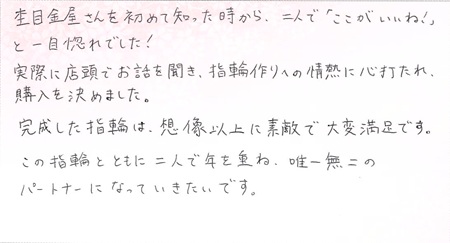 杢目金屋さんを初めて知った時から、二人で「ここがいいね!」
と一目惚れでした!
実際に店頭でお話を聞き、指輪作りへの情熱に心打たれ、
購入を決めました。
完成した指輪は、想像以上に素敵で大変満足です。
この指輪とともに二人で年を重ね、唯一無二の
パートナーになっていきたいです。